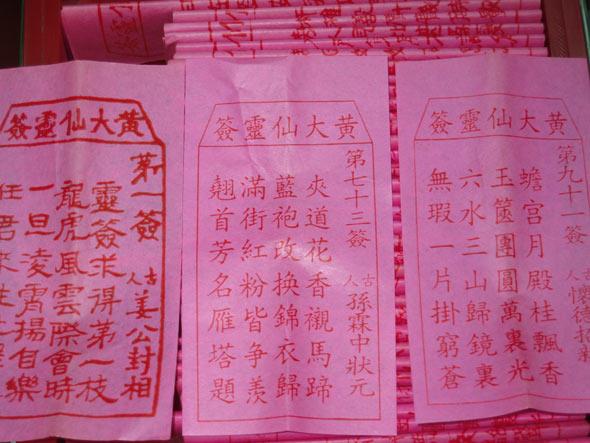 黃大仙靈簽
苐一簽
古人姜公封相
靈簽求得第一枝
龍虎風雲際會時
一旦凌霄揚自樂
任君來
黃大仙靈簽
第七十三簽
古人孫霖中狀元
夾道花香襯馬蹄
藍袍改换錦衣歸
滿街紅粉皆争羨
翹首芳名雁塔題
黃大仙靈簽
第九十一簽
古人懷德招親
蟾宮月殿桂飄香
玉篋團圓萬裏光
六水三山歸鏡裏
無瑕一片掛窮蒼